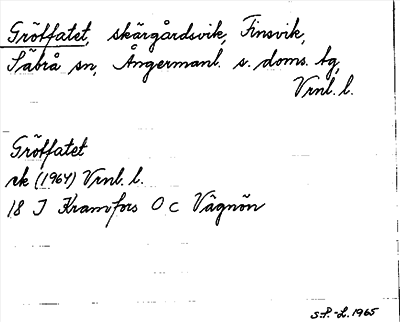 Grötfatet, skärgårdsvik, Finsvik,
Säbrå sn, Ångermanl. s. doms. tg,
Vrnl. l.
Grötfatet
rk (1964) Vrnl. l.
18 I Kramfors O c Vägnön
S-P.-L. 1965